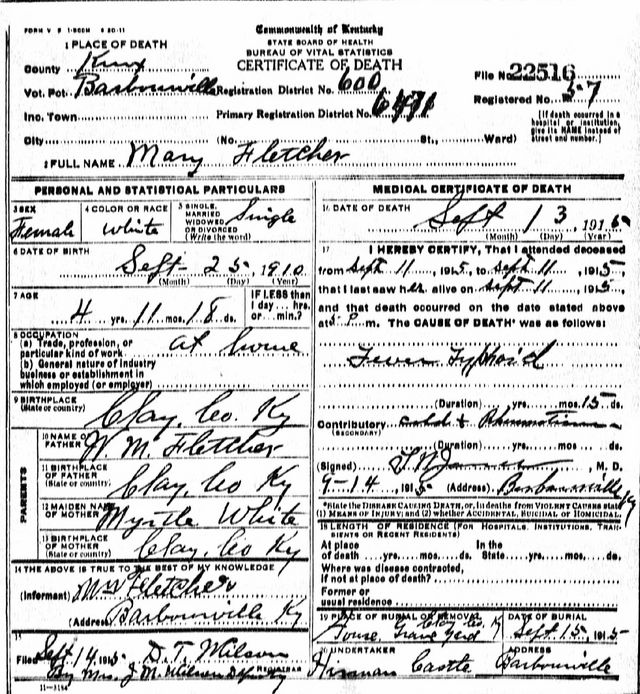 FORM V S 1-500M 6 20-11
Commonwealth of Kentucky
STATE BOARD OF HEALTH
BUREAU OF VITAL STATISTICS
CERTIFICATE OF DEATH
1 PLACE OF DEATH
County Knox
Vot. Pct. Barbourville Registration District No. 600
File No. 22516
Inc. Town Primary Registration District No. 6471
Registered No. 57
City (No. St., Ward)
[If death occurred in a hospital or institution, give its NAME instead of street and number.]
2 FULL NAME Mary Fletcher
PERSONAL AND STATISTICAL PARTICULARS
3 SEX Female
4 COLOR OR RACE White
5 SINGLE, MARRIED WIDOWED OR DIVORCED (Write the word) Single
6 DATE OF BIRTH
Sept 25, 1910
(Month) (Day) (Year)
7 AGE
4 yrs. 11 mos. 18 ds.
IF LESS than 1 day... hrs. or min.?
8 OCCUPATION
(a) Trade, profession, or particular kind of work at home
(b) General nature of industry business or establishment in which employed (or employer)
9 BIRTHPLACE (State or country) Clay, Co. Ky
PARENTS
10 NAME OF FATHER W. M. Fletcher
11 BIRTHPLACE OF FATHER (State or country) Clay, Co Ky
12 MAIDEN NAME OF MOTHER Myrtle White
13 BIRTHPLACE OF MOTHER (State or country) Clay, Co Ky
14 THE ABOVE IS TRUE TO THE BEST OF MY KNOWLEDGE
(Informant) Fletcher
(Address) Barbourville Ky
15
Filed Sept 14 1915 D. T. Wilson
By Mrs. J. M. Wilson Deputy REGISTRAR
11-3184
MEDICAL CERTIFICATE OF DEATH
16 DATE OF DEATH
Sept 13, 1915
(Month) (Day) (Year)
17 I HEREBY CERTIFY, That I attended deceased
from Sept 11, 1915, to Sept 11, 1915,
that I last saw her alive on Sept 11, 1915,
and that death occurred on the date stated above
at 5 P m. The CAUSE OF DEATH* was as follows:
Fever Typhoid
(Duration) yrs. mos. 15 ds.
Contributory (SECONDARY) cold + Rheumatism
(Duration) yrs. mos. ds.
(Signed) M. D.
9-14, 1915 (Address) Barbourville Ky
*State the DISEASE CAUSING DEATH, or, in deaths from VIOLENT CAUSES state (1) MEANS OF INJURY; and (2) whether ACCIDENTAL, SUICIDAL or HOMICIDAL
18 LENGTH OF RESIDENCE (FOR HOSPITALS, INSTITUTIONS, TRANSIENTS OR RECENT RESIDENTS)
At place of death yrs. mos. ds. In the State yrs. mos. ds.
Where was disease contracted, if not at place of death?
Former or usual residence
19 PLACE OF BURIAL OR REMOVAL Clay Co, K
House Grave Yard
DATE OF BURIAL
Sept 15, 1915
20 UNDERTAKER Hirman Castle
ADDRESS Barbourville